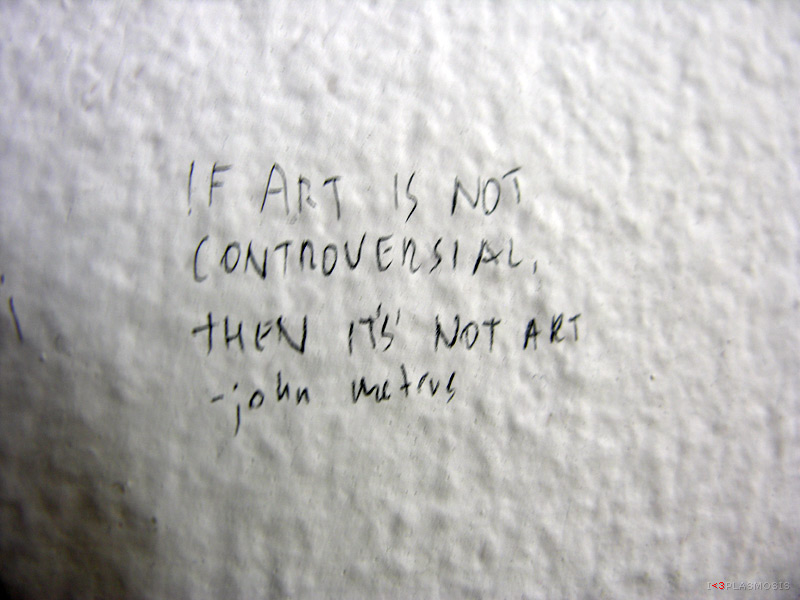 IF ART IS NOT
CONTROVERSIAL,
tHEN IT'S' NOT ART
-john metrus
I<3PLASMOSIS